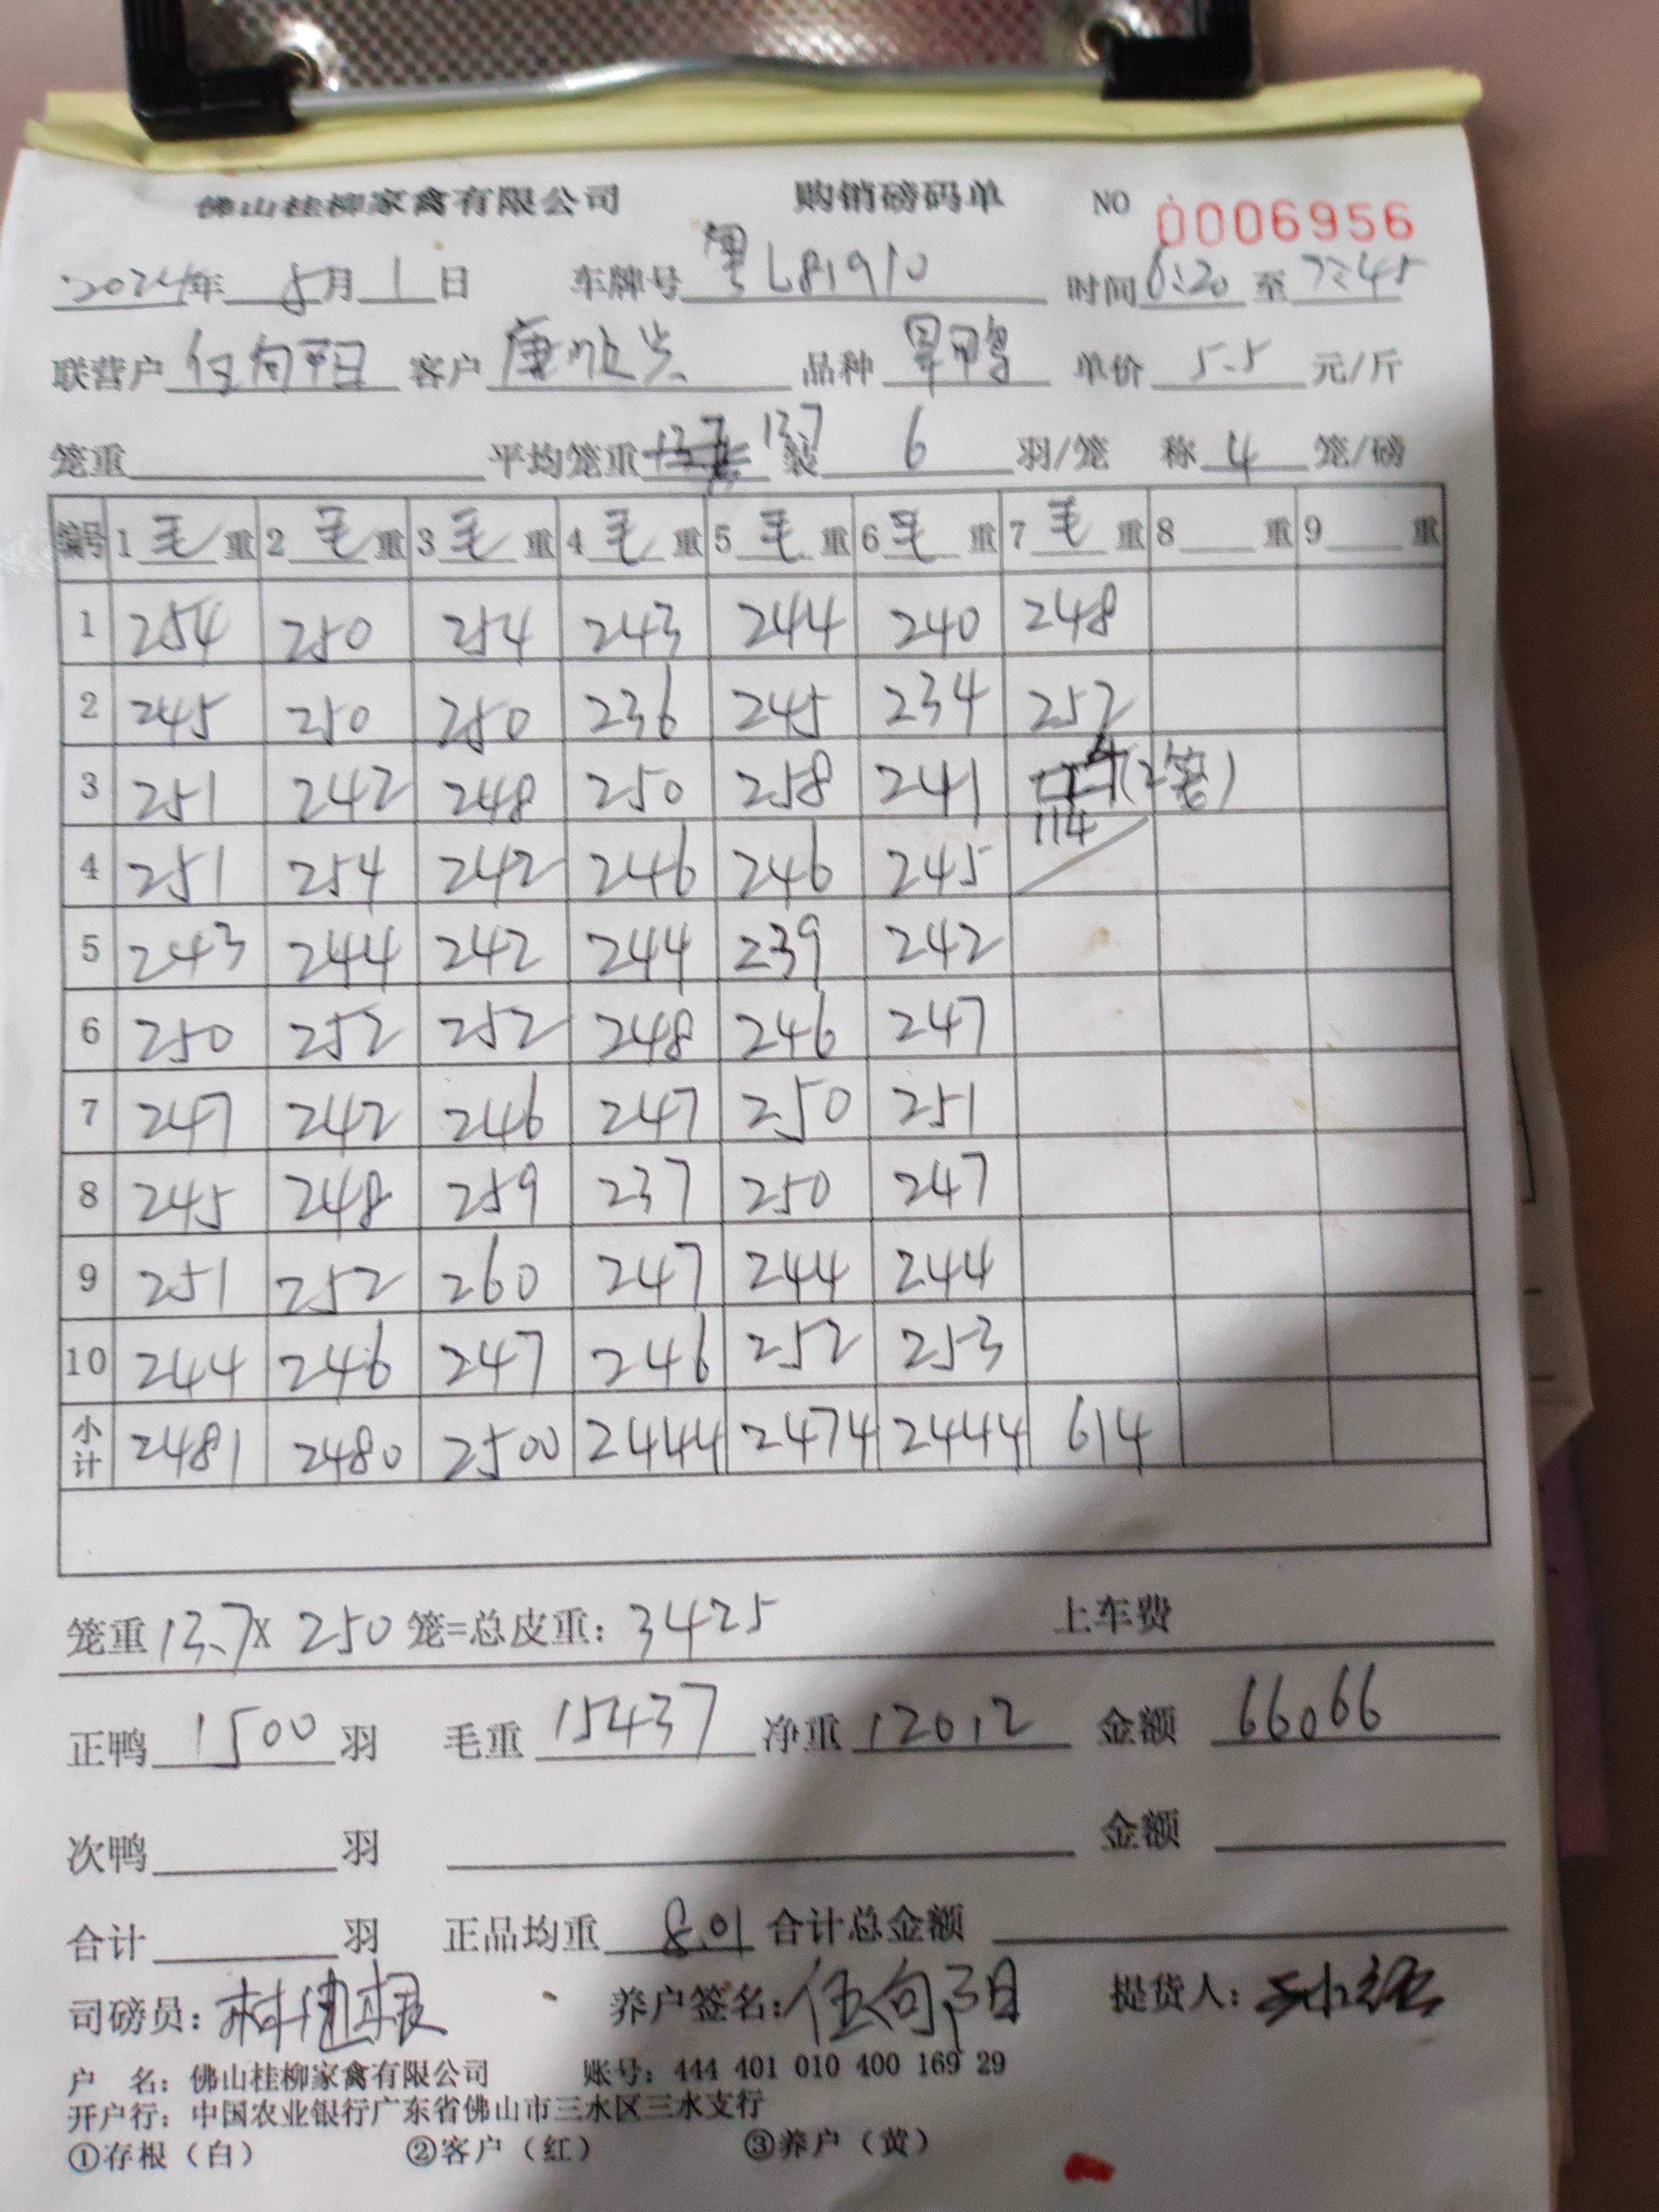 佛山桂柳家禽有限公司 购销磅码单 NO 0006956
2024年 5月 1日 车牌号 粤L81910 时间 6:20 至 7:45
联营户 伍向阳 客户 康顺兴 品种 旱鸭 单价 5.5 元/斤
笼重 平均笼重 13.7 装 6 羽/笼 称 4 笼/磅
编号 1 毛 重 2 毛 重 3 毛 重 4 毛 重 5 毛 重 6 毛 重 7 毛 重 8 重 9 重
1 254 250 254 243 244 240 248
2 245 250 250 236 245 234 252
3 251 242 248 250 258 241 114 (2笼)
4 251 254 242 246 246 245
5 243 244 242 244 239 242
6 250 252 252 248 246 247
7 247 242 246 247 250 251
8 245 248 259 237 250 247
9 251 252 260 247 244 244
10 244 246 247 246 252 253
小计 2481 2480 2500 2444 2474 2444 614
笼重 13.7 X 250 笼=总皮重: 3425 上车费
正鸭 1500 羽 毛重 15437 净重 12012 金额 66066
次鸭 羽 金额
合计 羽 正品均重 8.01 合计总金额
司磅员: 养户签名: 伍向阳 提货人:
户 名: 佛山桂柳家禽有限公司 账号: 444 401 010 400 169 29
开户行: 中国农业银行广东省佛山市三水区三水支行
①存根（白） ②客户（红） ③养户（黄）